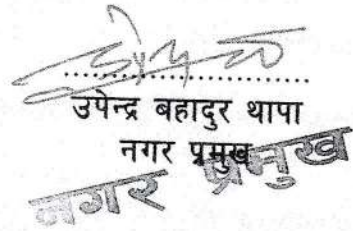 ........................
उपेन्द्र बहादुर थापा
नगर प्रमुख
नगर प्रमुख